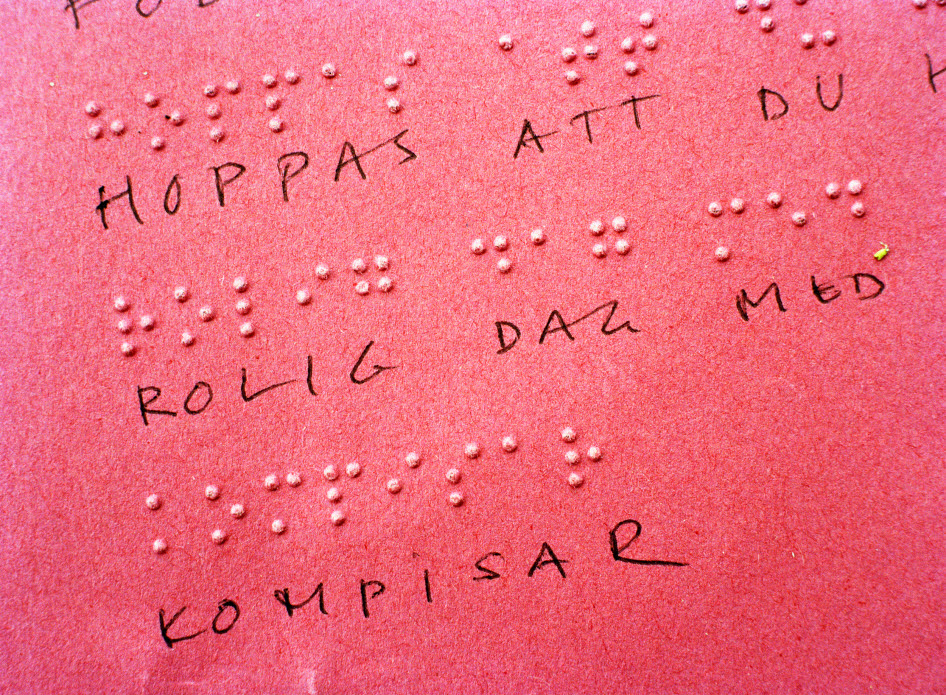 HOPPAS ATT DU
ROLIG DAG MED
KOMPISAR